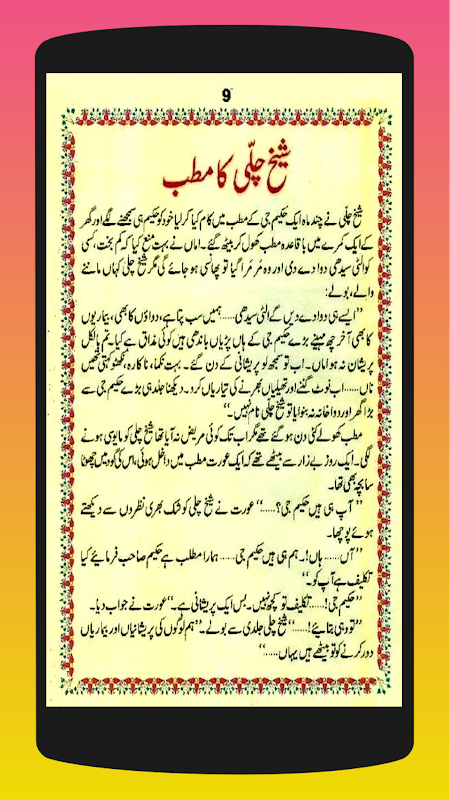 9
شیخ چلّی کا مطب
شیخ چلّی نے چند ماہ ایک حکیم جی کے مطب میں کام کیا کر لیا خود کو حکیم ہی سمجھنے لگے اور گھر
کے ایک کمرے میں باقاعدہ مطب کھول کر بیٹھ گئے۔ اماں نے بہت منع کیا کہ کم بخت، کسی
کو الٹی سیدھی دوا دے دی اور وہ مَر مَرا گیا تو پھانسی ہو جائے گی مگر شیخ چلّی کہاں ماننے
والے، بولے:
’’ایسے ہی دوا دے دیں گے الٹی سیدھی...... ہمیں سب پتا ہے، دواؤں کا بھی، بیماریوں
کا بھی آخر چھ مہینے بڑے حکیم جی کے ہاں پڑیاں باندھی ہیں کوئی مذاق ہے کیا۔ تم بالکل
پریشان نہ ہو اماں۔ اب تو سمجھ لو پریشانی کے دن گئے۔ بہت نکما، ناکارہ، نکھٹو کہتی تھیں
ناں...... اب نوٹ گننے اور تھیلیاں بھرنے کی تیاریاں کرو۔ دیکھنا جلد ہی بڑے حکیم جی سے
بڑا گھر اور دواخانہ نہ بنوایا تو شیخ چلّی نام نہیں۔‘‘
مطب کھولے کئی دن ہو گئے تھے مگر اب تک کوئی مریض نہ آیا تھا شیخ چلّی کو مایوسی ہونے
لگی۔ ایک روز بے زار سے بیٹھے تھے کہ ایک عورت مطب میں داخل ہوئی، اس کی گود میں چھوٹا
سا بچہ بھی تھا۔
’’ آپ ہی ہیں حکیم جی؟......‘‘ عورت نے شیخ چلّی کو شک بھری نظروں سے دیکھتے
ہوئے پوچھا۔
’’آں...... ہاں!۔ ہم ہی ہیں حکیم جی...... ہمارا مطلب ہے حکیم صاحب فرمائیے کیا
تکلیف ہے آپ کو۔‘‘
’’حکیم جی!...... تکلیف تو کچھ نہیں۔ بس ایک پریشانی ہے۔‘‘ عورت نے جواب دیا۔
’’تو وہی بتائیے!......‘‘ شیخ چلّی جلدی سے بولے۔ ’’ہم لوگوں کی پریشانیاں اور بیماریاں
دور کرنے کو تو بیٹھے ہیں یہاں......‘‘